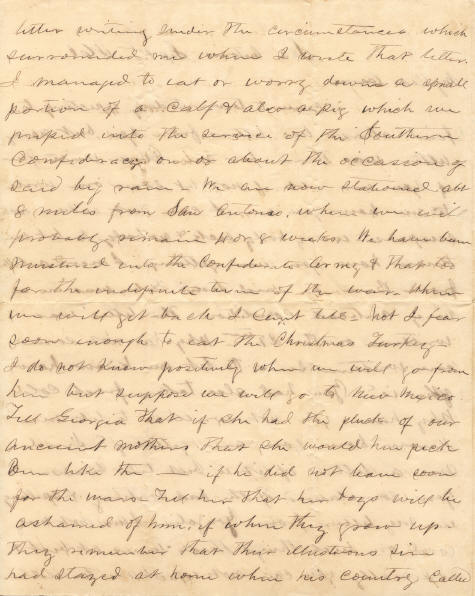 letter writing under the circumstances which
surrounded me when I wrote that letter.
I managed to eat or worry down a small
portion of a calf & also a pig which we
pressed into the service of the Southern
Confederacy on or about the occasion of
said big rain We are now stationed abt
8 miles from San Antonio, where we will
probably remain 4 or 8 weeks. We have been
mustered into the Confederate Army & that too
for the indefinite term of the war. When
we will get back I Cant tell - Not I fear
soon enough to eat the Christmas Turkey
I do not know positively when we will go from
here but suppose we will go to New Mexico.
Tell Georgia that if she had the pluck of our
ancient mothers that she would
Ben like the — if he did not leave soon
for the wars. Tell her that her boys will be
ashamed of him, if when they grow up
they remember that their illustrious sire
had stayed at home when his country called